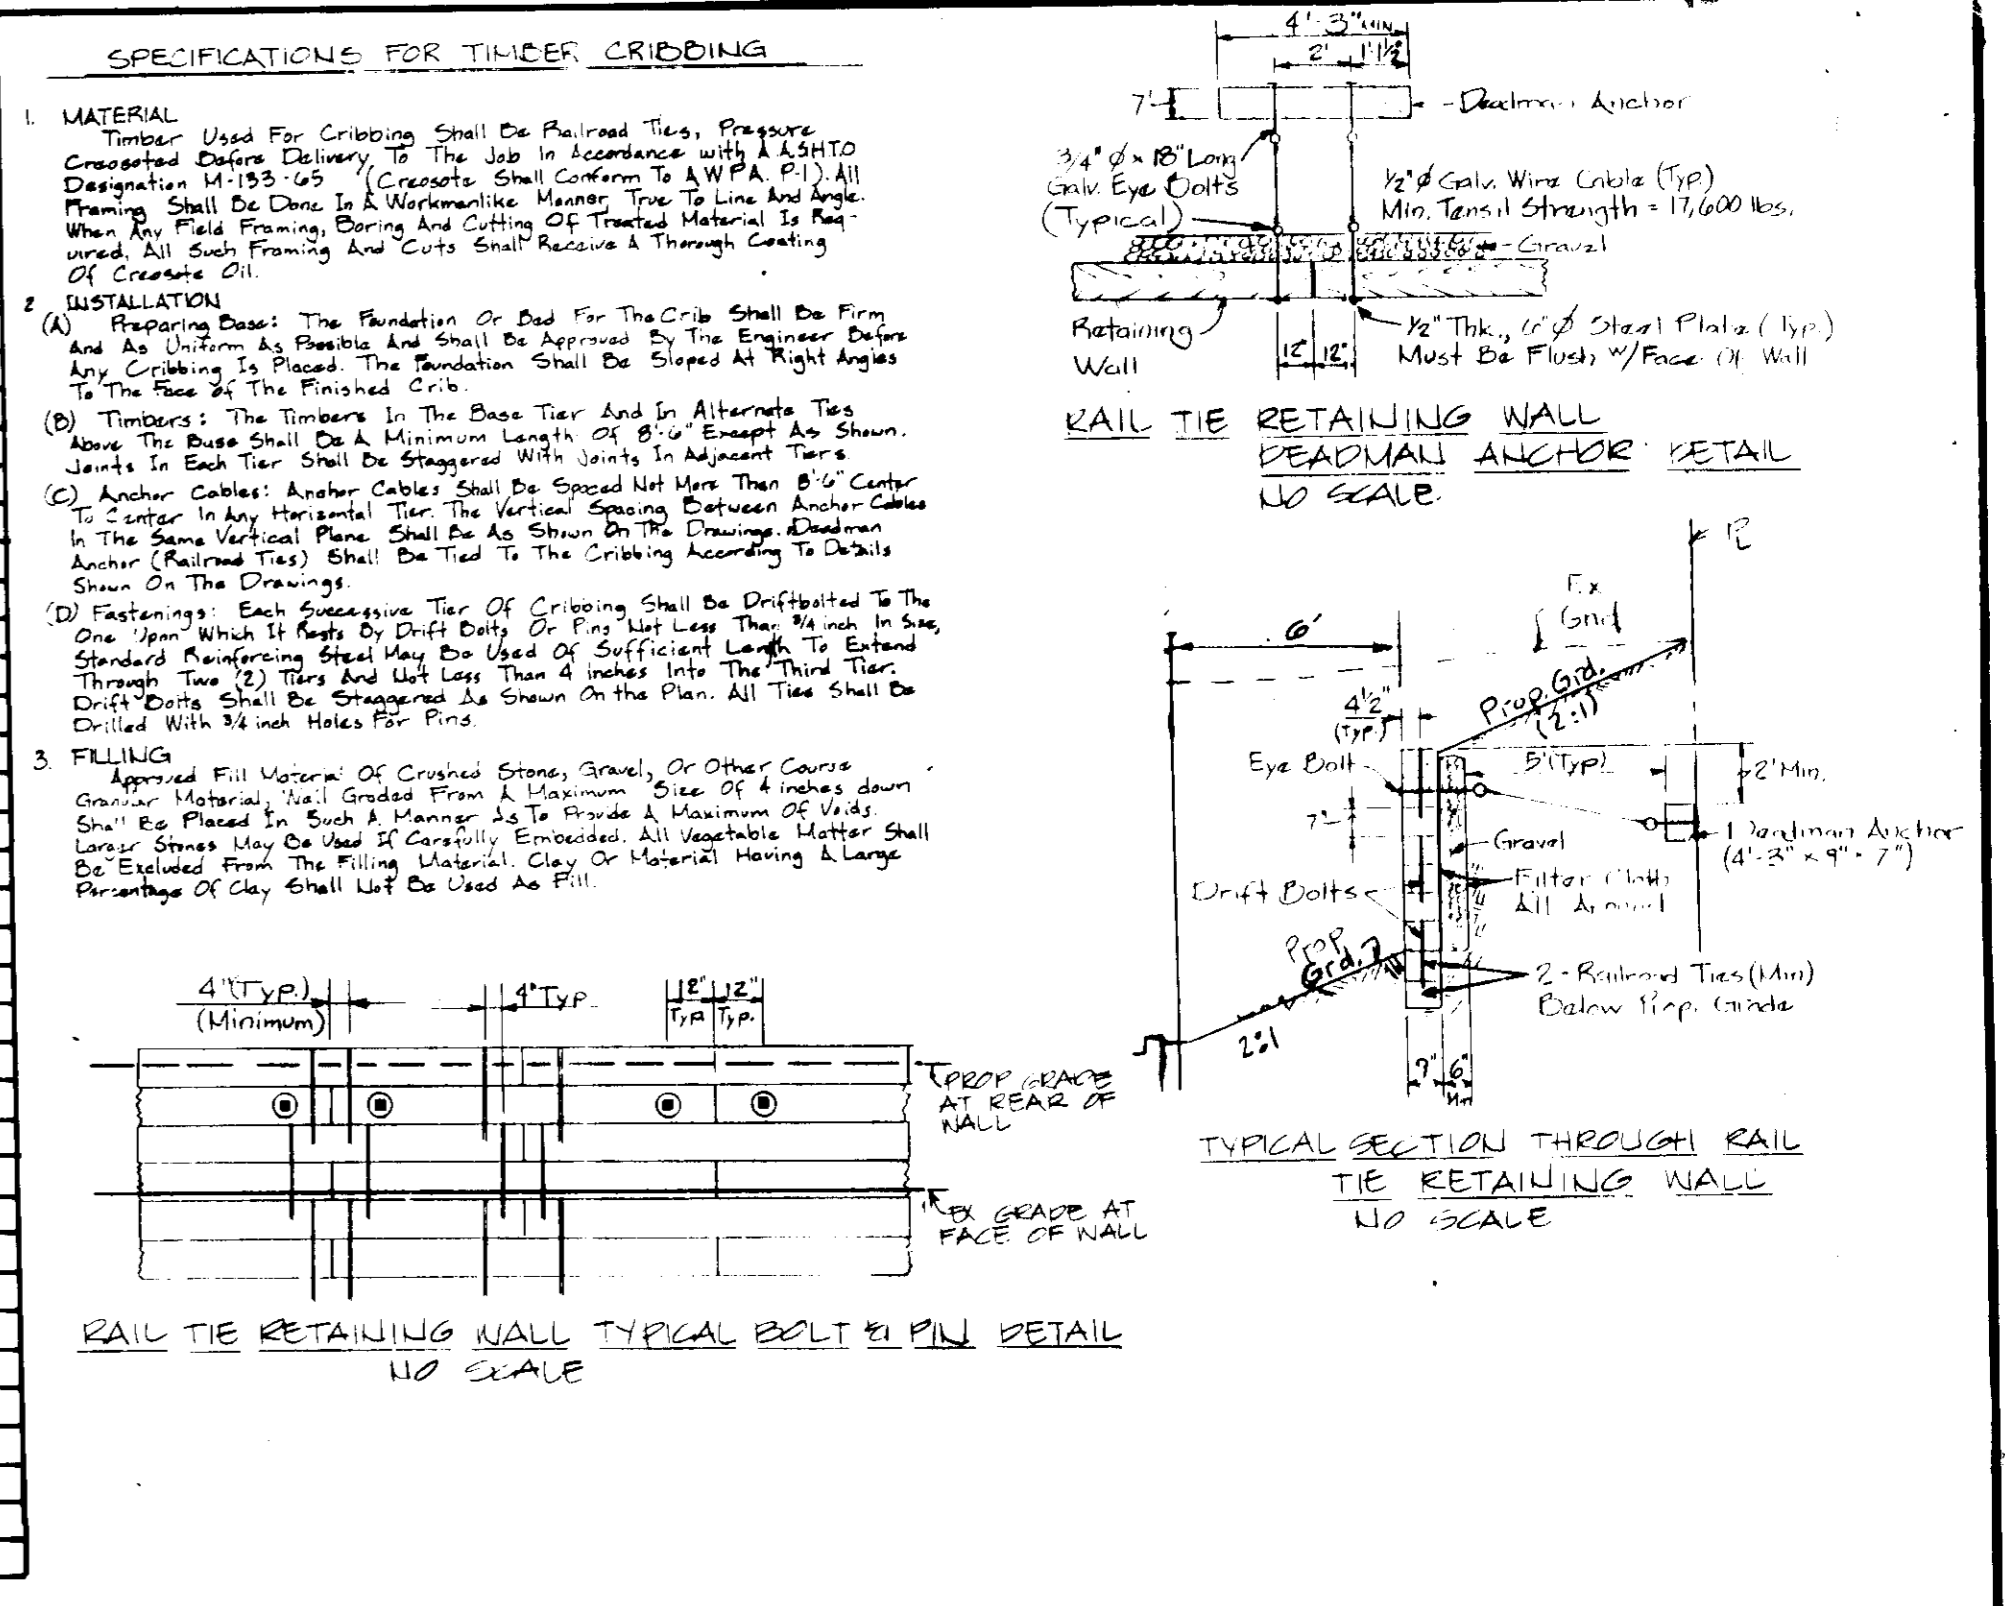 SPECIFICATIONS FOR TIMBER CRIBBING
1. MATERIAL
Timber Used For Cribbing Shall Be Railroad Ties, Pressure
Creosoted Before Delivery To The Job In Accordance with A.A.S.H.T.O
Designation M-133-65 (Creosote Shall Conform To A.W.P.A. P-1). All
Framing Shall Be Done In A Workmanlike Manner, True To Line And Angle.
When Any Field Framing, Boring And Cutting Of Treated Material Is Req-
uired, All Such Framing And Cuts Shall Receive A Thorough Coating
Of Creosote Oil.
2 INSTALLATION
(A) Preparing Base: The Foundation Or Bed For The Crib Shall Be Firm
And As Uniform As Possible And Shall Be Approved By The Engineer Before
Any Cribbing Is Placed. The Foundation Shall Be Sloped At Right Angles
To The Face Of The Finished Crib.
(B) Timbers: The Timbers In The Base Tier And In Alternate Ties
Above The Base Shall Be A Minimum Length Of 8'-6" Except As Shown.
Joints In Each Tier Shall Be Staggered With Joints In Adjacent Tiers.
(C) Anchor Cables: Anchor Cables Shall Be Spaced Not More Than 8'-6" Center
To Center In Any Horizontal Tier. The Vertical Spacing Between Anchor Cables
In The Same Vertical Plane Shall Be As Shown On The Drawings. Deadman
Anchor (Railroad Ties) Shall Be Tied To The Cribbing According To Details
Shown On The Drawings.
(D) Fastenings: Each Successive Tier Of Cribbing Shall Be Driftbolted To The
One Upon Which It Rests By Drift Bolts Or Pins Not Less Than 3/4 inch In Size,
Standard Reinforcing Steel May Be Used Of Sufficient Length To Extend
Through Two (2) Tiers And Not Less Than 4 inches Into The Third Tier.
Drift Bolts Shall Be Staggered As Shown On the Plan. All Ties Shall Be
Drilled With 3/4 inch Holes For Pins.
3. FILLING
Approved Fill Material Of Crushed Stone, Gravel, Or Other Course
Granular Material, Well Graded From A Maximum Size Of 4 inches down
Shall Be Placed In Such A Manner As To Provide A Maximum Of Voids.
Larger Stones May Be Used If Carefully Embedded. All Vegetable Matter Shall
Be Excluded From The Filling Material. Clay Or Material Having A Large
Percentage Of Clay Shall Not Be Used As Fill.
4"(Typ.)
(Minimum)
4" Typ.
12" 12"
Typ. Typ.
PROP GRADE
AT REAR OF
WALL
EX GRADE AT
FACE OF WALL
RAIL TIE RETAINING WALL TYPICAL BOLT & PIN DETAIL
NO SCALE
4'-3" MIN.
2' 1'1½"
7"
Deadman Anchor
3/4" Ø x 18" Long
Galv. Eye Bolts
(Typical)
½" Ø Galv. Wire Cable (Typ.)
Min. Tensil Strength = 17,600 lbs.
Gravel
Retaining
Wall
12" 12"
½" Thk., 6" Ø Steel Plate (Typ.)
Must Be Flush w/Face Of Wall
RAIL TIE RETAINING WALL
DEADMAN ANCHOR DETAIL
NO SCALE.
PL
Ex
Grd
6'
Prop. Grd.
(2:1)
4½"
(Typ.)
Eye Bolt
5'(Typ)
2' Min.
7"
1 Deadman Anchor
(4'-3" x 9" x 7")
Gravel
Filter Cloth
All Around
Drift Bolts
Prop.
Grd.
2:1
2-Railroad Ties (Min)
Below Prop. Grade
7" 6"
Min
TYPICAL SECTION THROUGH RAIL
TIE RETAINING WALL
NO SCALE